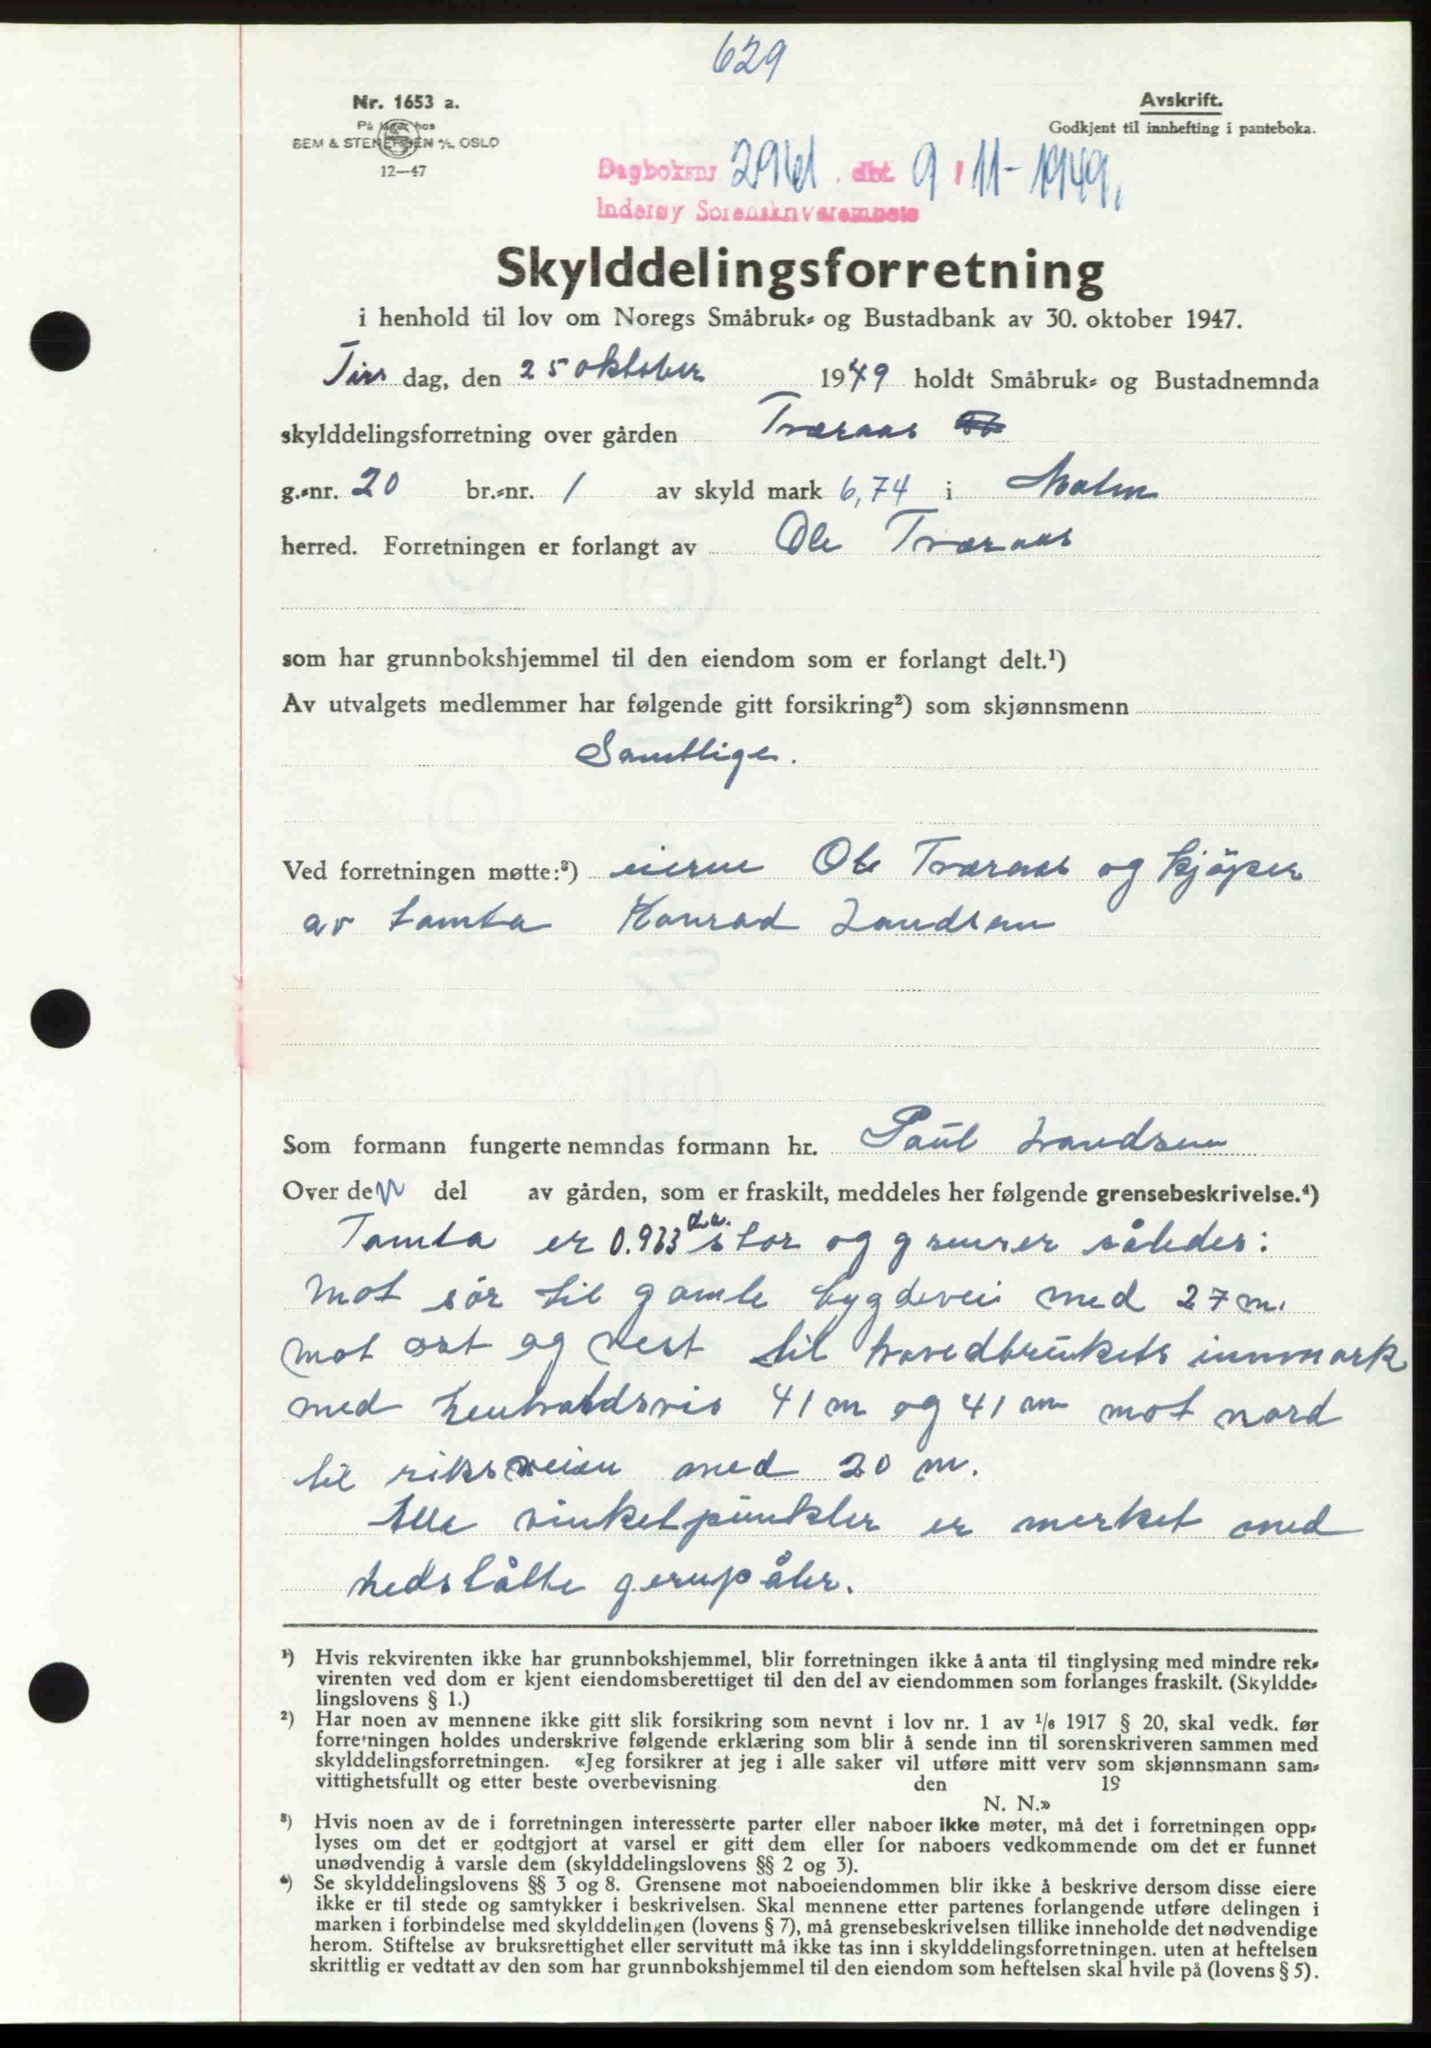 629
Nr. 1653 a.
På lager hos
SEM & STENERSEN A/S. OSLO
12—47
Avskrift.
Godkjent til innhefting i panteboka.
Dagbokens 2961. dbt. 9/11-1949.
Inderøy Sorenskriverembete
Skylddelingsforretning
i henhold til lov om Noregs Småbruk- og Bustadbank av 30. oktober 1947.
Tirs dag, den 25 oktober 1949 holdt Småbruk- og Bustadnemnda
skylddelingsforretning over gården Tværaas
g.-nr. 20 br.-nr. 1 av skyld mark 6,74 i Malm
herred. Forretningen er forlangt av Ole Tværaas
som har grunnbokshjemmel til den eiendom som er forlangt delt.¹)
Av utvalgets medlemmer har følgende gitt forsikring²) som skjønnsmenn
Samtlige.
Ved forretningen møtte:³) eieren Ole Tværaas og kjöper
av tomta Konrad
Som formann fungerte nemndas formann hr. Paul
Over den del av gården, som er fraskilt, meddeles her følgende grensebeskrivelse.⁴)
Tomta er 0.963 da. stor og grenser således:
mot sør til gamle bygdevei med 27 m.
mot øst og vest til hovedbrukets innmark
med henholdsvis 41 m og 41 m mot nord
til riksveien med 20 m.
Alle vinkelpunkter er merket med
nedslåtte
¹) Hvis rekvirenten ikke har grunnbokshjemmel, blir forretningen ikke å anta til tinglysing med mindre rek-
virenten ved dom er kjent eiendomsberettiget til den del av eiendommen som forlanges fraskilt. (Skyldde-
lingslovens § 1.)
²) Har noen av mennene ikke gitt slik forsikring som nevnt i lov nr. 1 av ¹/₆ 1917 § 20, skal vedk. før
forretningen holdes underskrive følgende erklæring som blir å sende inn til sorenskriveren sammen med
skylddelingsforretningen. «Jeg forsikrer at jeg i alle saker vil utføre mitt verv som skjønnsmann sam-
vittighetsfullt og etter beste overbevisning den 19
N. N.»
³) Hvis noen av de i forretningen interesserte parter eller naboer ikke møter, må det i forretningen opp-
lyses om det er godtgjort at varsel er gitt dem eller for naboers vedkommende om det er funnet
unødvendig å varsle dem (skylddelingslovens §§ 2 og 3).
⁴) Se skylddelingslovens §§ 3 og 8. Grensene mot naboeiendommen blir ikke å beskrive dersom disse eiere
ikke er til stede og samtykker i beskrivelsen. Skal mennene etter partenes forlangende utføre delingen i
marken i forbindelse med skylddelingen (lovens § 7), må grensebeskrivelsen tillike inneholde det nødvendige
herom. Stiftelse av bruksrettighet eller servitutt må ikke tas inn i skylddelingsforretningen. uten at heftelsen
skrittlig er vedtatt av den som har grunnbokshjemmel til den eiendom som heftelsen skal hvile på (lovens § 5).